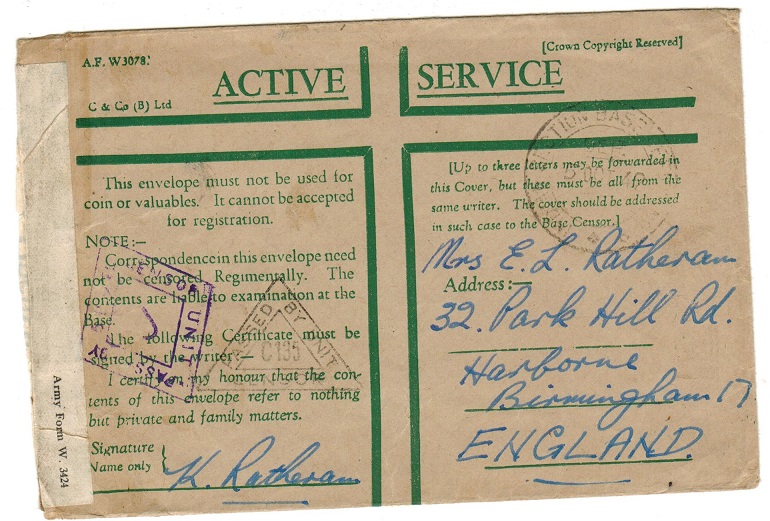 A.F. W3078.
[Crown Copyright Reserved]
ACTIVE SERVICE
C & Co (B) Ltd
This envelope must not be used for
coin or valuables. It cannot be accepted
for registration.
NOTE:—
Correspondence in this envelope need
not be censored Regimentally. The
contents are liable to examination at the
Base.
The following Certificate must be
signed by the writer:—
I certify on my honour that the con-
tents of this envelope refer to nothing
but private and family matters.
Signature
Name only }
K. Ratheram
[Up to three letters may be forwarded in
this Cover, but these must be all from the
same writer. The cover should be addressed
in such case to the Base Censor.]
Mrs E. L. Ratheram
Address:—
32. Park Hill Rd.
Harborne
Birmingham 17
ENGLAND.
Army Form W. 3424
PASSED BY UNIT
C135
UNIT
PASS
BY